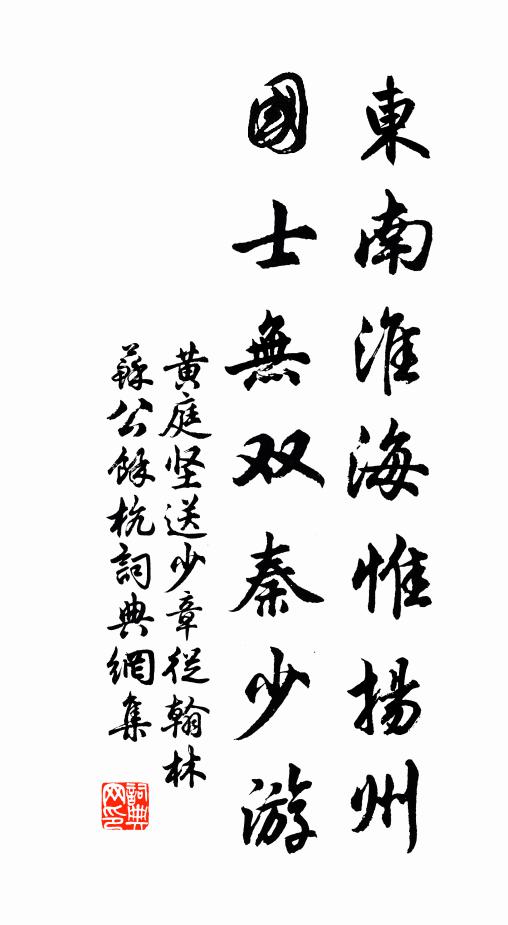 東南淮海惟揚州
國士無双秦少游
黄庭坚送少章從翰林
蘇公餘杭詞典網集
詞典网印